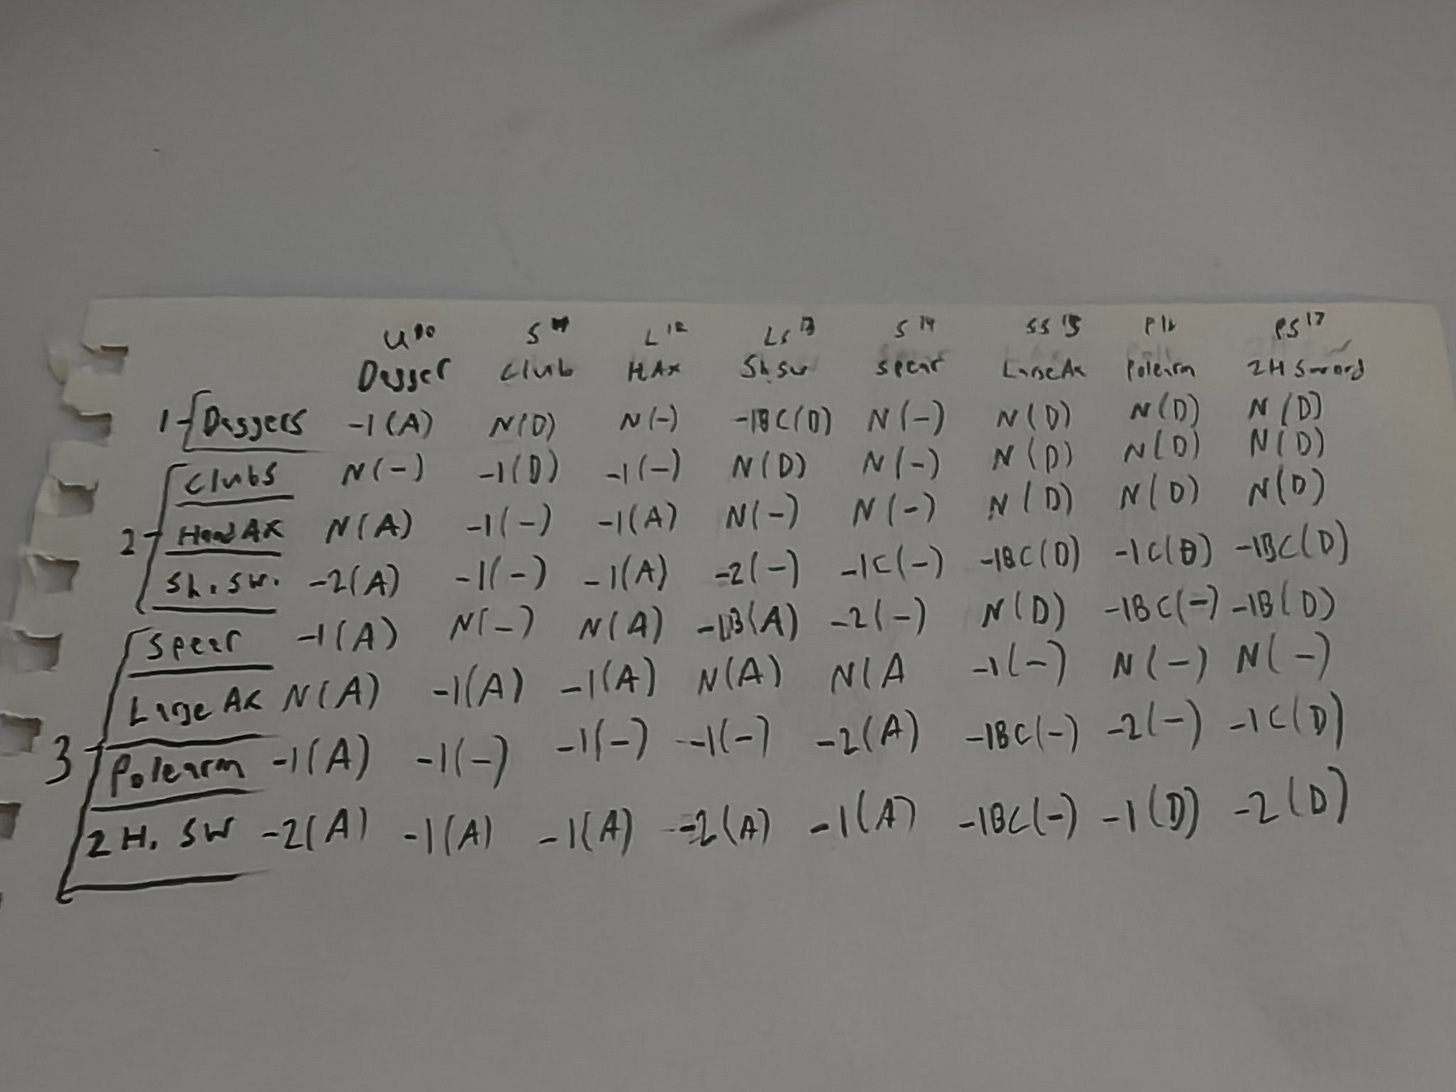 U 10 S 11 L 12 LS 13 S 14 SS 15 P 16 PS 17
Dagger Club HAx Sh.sw Spear Large Ax Polearm 2H Sword
1 Daggers -1(A) N(D) N(-) -1BC(D) N(-) N(D) N(D) N(D)
Clubs N(-) -1(D) -1(-) N(D) N(-) N(D) N(D) N(D)
2 Hand Ax N(A) -1(-) -1(A) N(-) N(-) N(D) N(D) N(D)
Sh. Sw. -2(A) -1(-) -1(A) -2(-) -1C(-) -1BC(D) -1C(D) -1BC(D)
Spear -1(A) N(-) N(A) -1B(A) -2(-) N(D) -1BC(-) -1B(D)
Large Ax N(A) -1(A) -1(A) N(A) N(A -1(-) N(-) N(-)
3 Polearm -1(A) -1(-) -1(-) -1(-) -2(A) -1BC(-) -2(-) -1C(D)
2H. SW -2(A) -1(A) -1(A) -2(A) -1(A) -1BC(-) -1(D) -2(D)